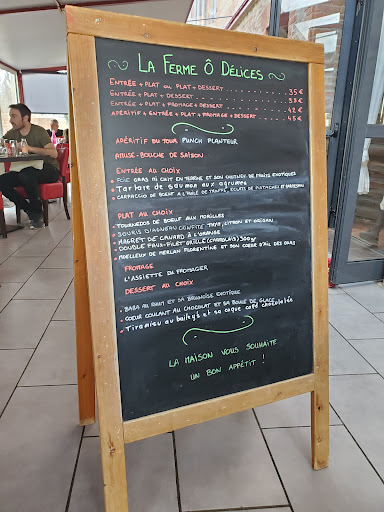 LA FERME Ô DÉLICES
ENTRÉE + PLAT OU PLAT + DESSERT 35€
ENTRÉE + PLAT + DESSERT 39€
ENTRÉE + PLAT + FROMAGE + DESSERT 42€
APÉRITIF + ENTRÉE + PLAT + FROMAGE + DESSERT 45€
APÉRITIF DU JOUR PUNCH PLANTEUR
AMUSE-BOUCHE DE SAISON
ENTRÉE AU CHOIX
• FOIE GRAS MI CUIT EN TERRINE ET SON CHUTNEY DE FRUITS EXOTIQUES
• Tartare de saumon aux agrumes
• CARPACCIO DE BOEUF À L'HUILE DE TRUFFE, ÉCLATS DE PISTACHES ET PARMESAN
PLAT AU CHOIX
• TOURNEDOS DE BOEUF AUX MORILLES
• SOURIS D'AGNEAU CONFITE THYM, CITRON ET ORIGAN
• MAGRET DE CANARD À L'ORANGE
• DOUBLE FAUX-FILET GRILLÉ (CHAROLAIS) 300gr
• MOELLEUX DE MERLAN FLORENTINE ET SON COEUR D'AIL DES OURS
FROMAGE
L'ASSIETTE DU FROMAGER
DESSERT AU CHOIX
• BABA AU RHUM ET SA BRUNOISE EXOTIQUE
• COEUR COULANT AU CHOCOLAT ET SA BOULE DE GLACE
• Tiramisu au bailey's et son coque café chocolatés
LA MAISON VOUS SOUHAITE
UN BON APPÉTIT !